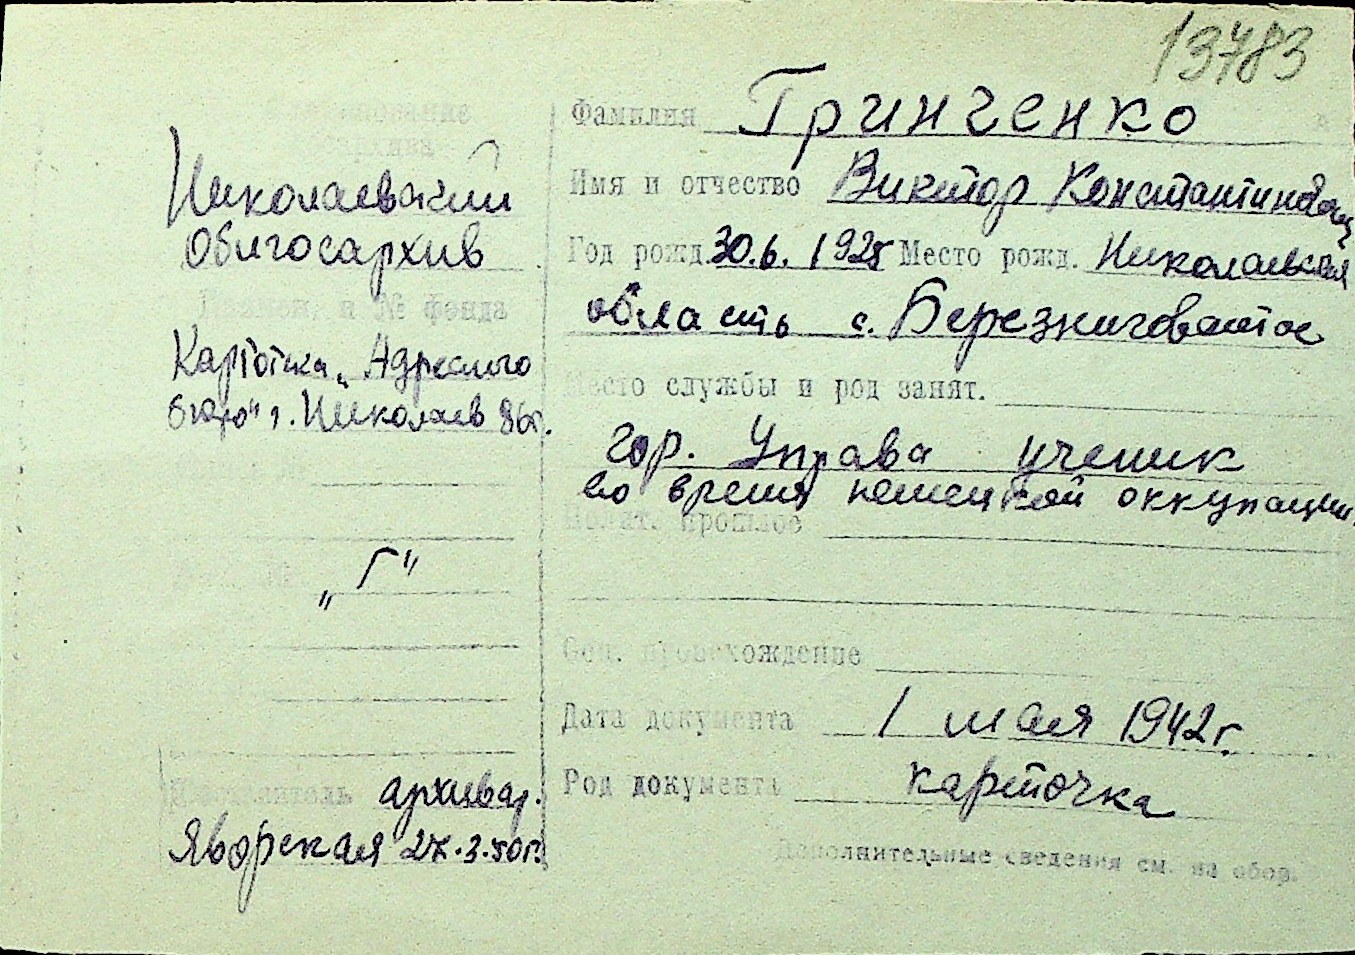 13783
Фамилия Гринченко
Имя и отчество Виктор Константинович
Год рожд. 30.6. 1925 Место рожд. Николаевская
область с. Березниговатое
Место службы и род занят.
гор. Управа ученик
во время немецкой оккупации
Полит. прошлое
Соц. происхождение
Дата документа 1 мая 1942 г.
Род документа карточка
Дополнительные сведения см. на обор.
Наименование
архива
Николаевский
Облгосархив
Наимен. и № фонда
Картотека „Адресного
бюро" г. Николаев
„Г"
Исполнитель архивар.
Яворская 27.3.50г.